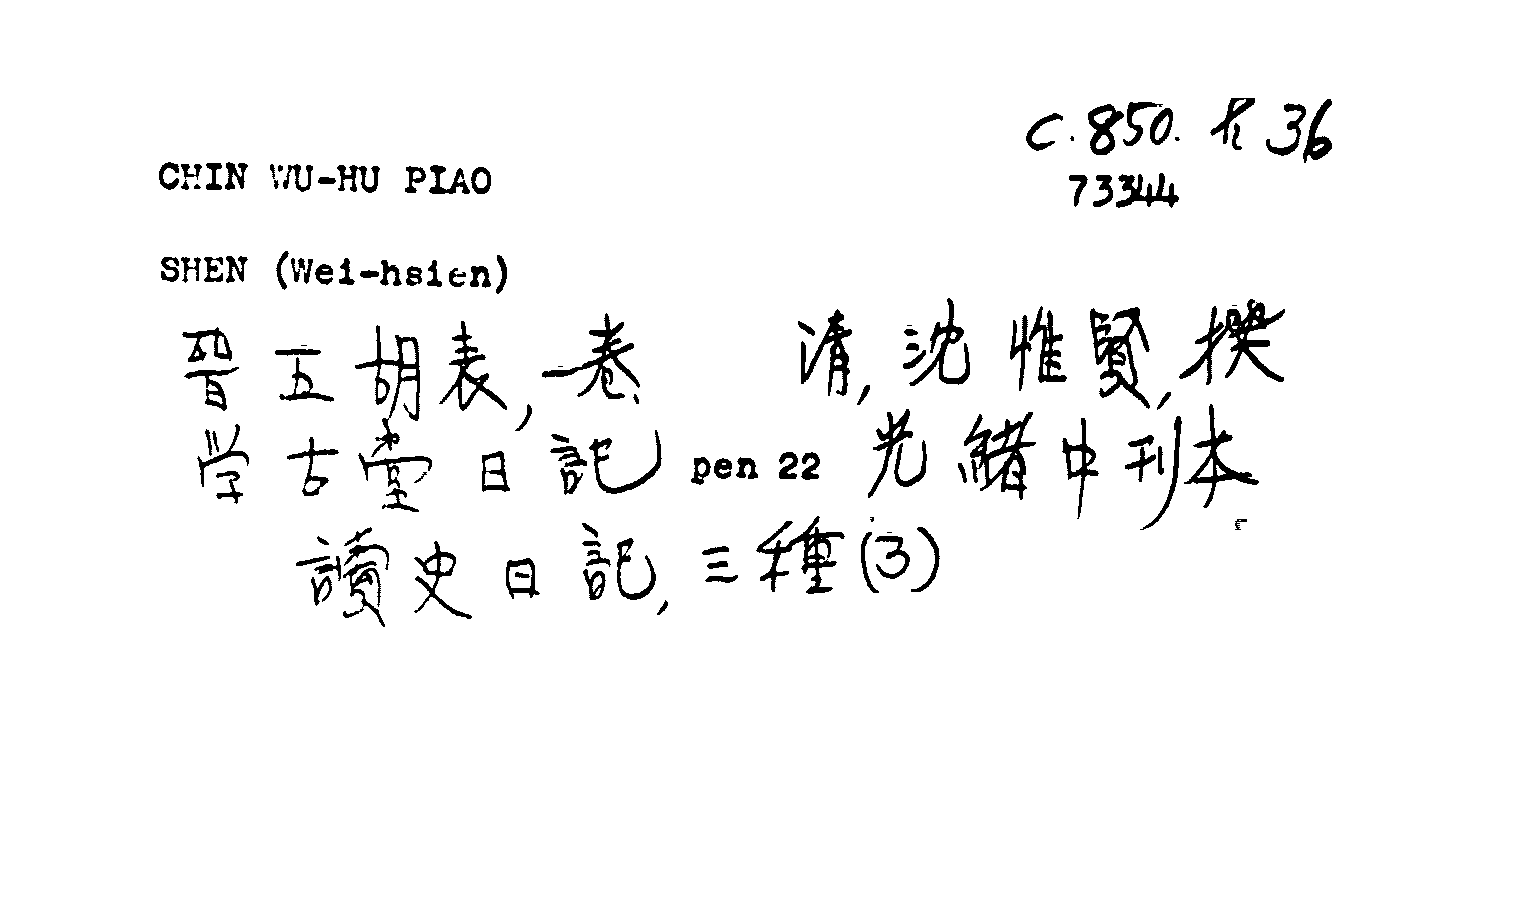 C. 850. 36
73344
CHIN WU-HU PIAO
SHEN (Wei-hsien)
晉五胡表,一卷 清,沈惟賢,撰
学古堂日記 pen 22 光緒中刊本
讀史日記,三種(3)